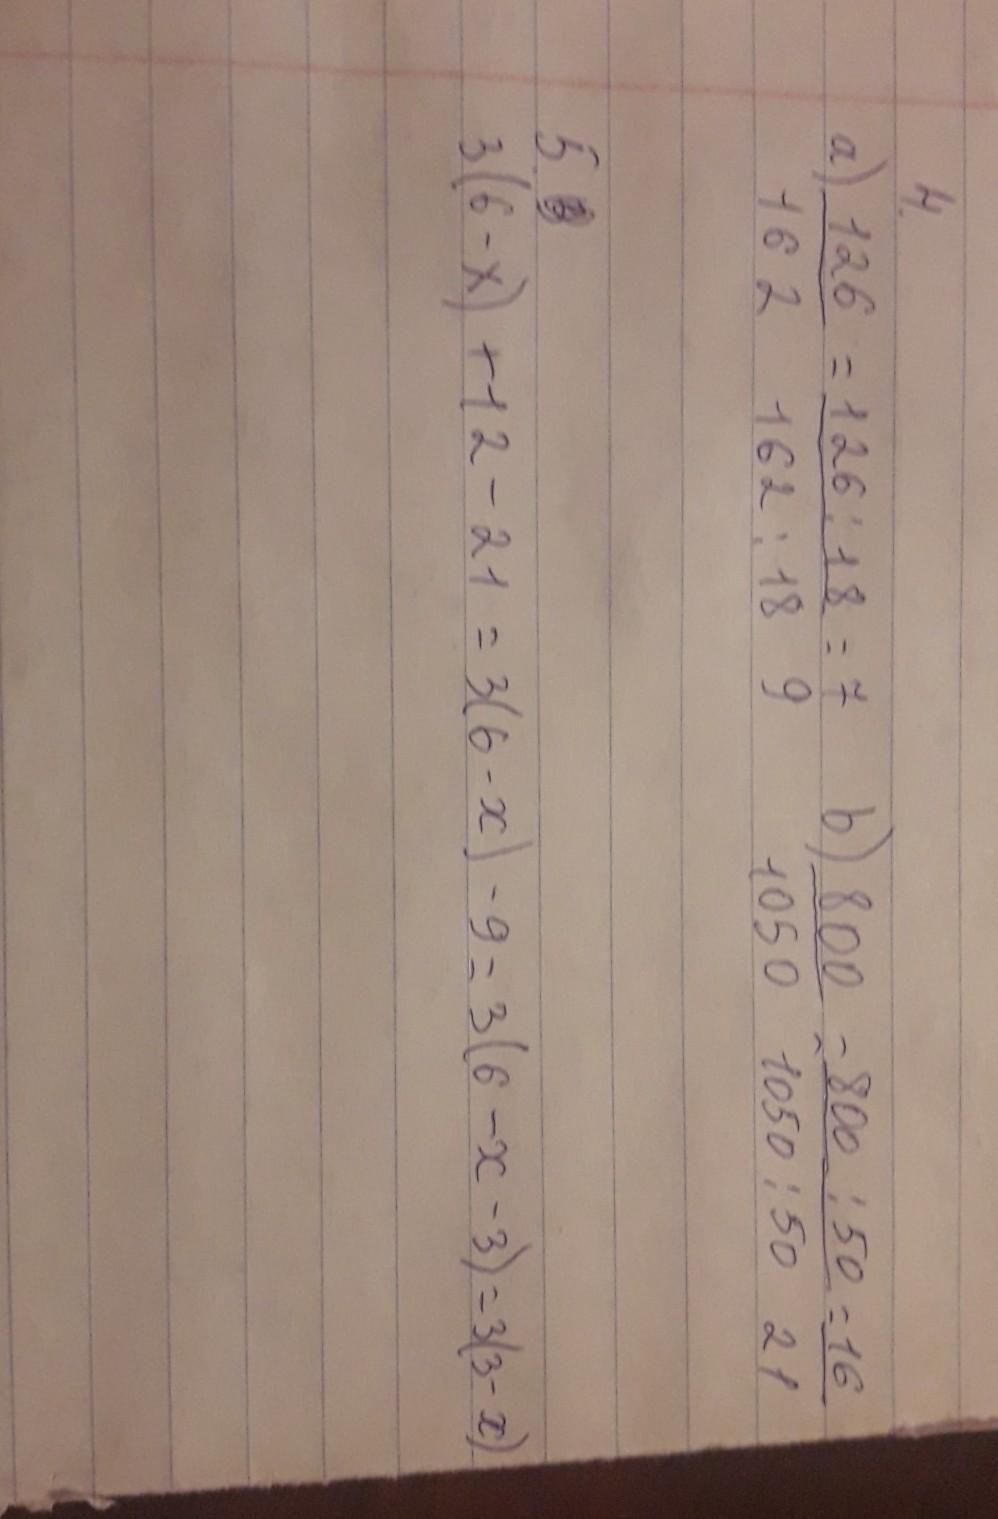 4.
a) 126 = 126:18 = 7 b) 800 = 800:50 = 16
162 162:18 9 1050 1050:50 21
5.
3(6-x) +12-21 = 3(6-x) -9= 3(6-x-3)=3(3-x)